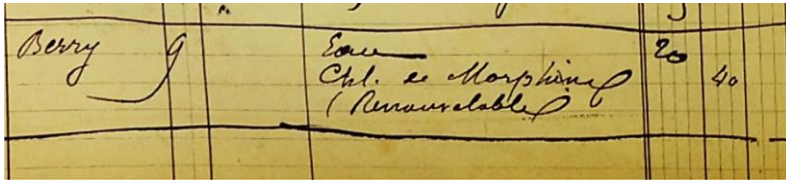 Berry 9 Eau 20
Chl. de Morphine 40
(Renouvelable)